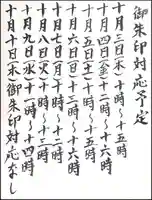 御朱印対応予定
十月三日(木)十時〜十五時
十月四日(金)十一時〜十六時
十月五日(土)十時〜十五時
十月六日(日)十時〜十六時
十月七日(月)十時〜十二時
十月八日(火)十一時〜十三時
十月九日(水)十一時〜十四時
十月十日(木)御朱印対応なし